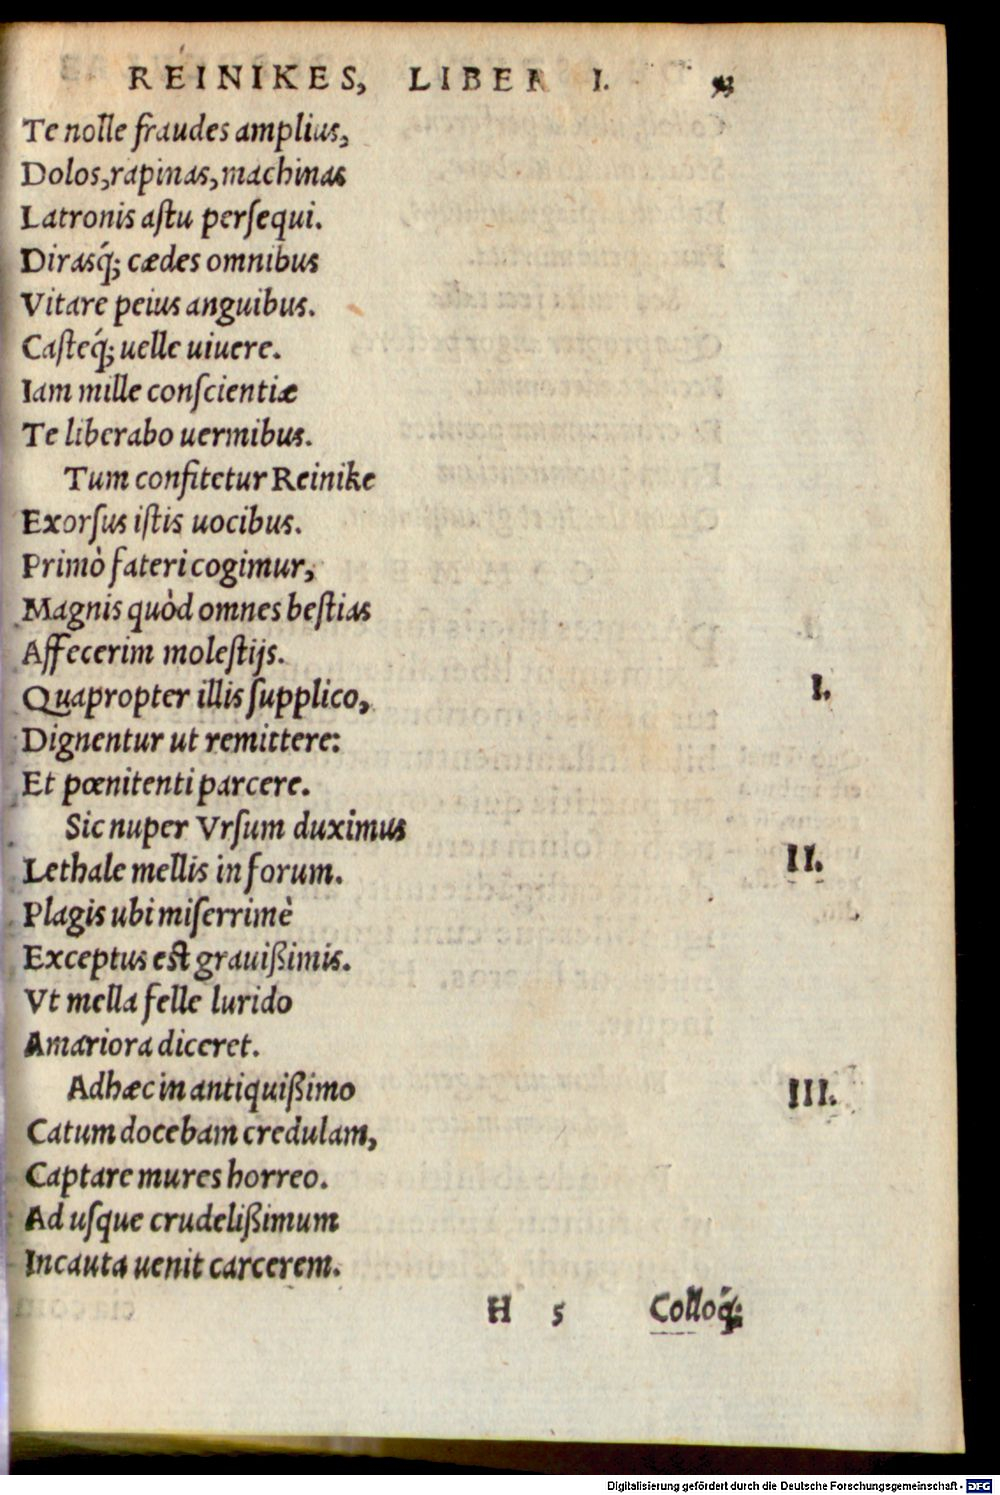 REINIKES, LIBER I.
Te nolle fraudes amplius,
Dolos, rapinas, machinas
Latronis astu persequi.
Dirasq́; cædes omnibus
Vitare peius anguibus.
Casteq́; uelle uiuere.
Iam mille conscientiæ
Te liberabo uermibus.
Tum confitetur Reinike
Exorsus istis uocibus.
Primò fateri cogimur,
Magnis quòd omnes bestias
Affecerim molestijs.
Quapropter illis supplico, I.
Dignentur ut remittere:
Et pœnitenti parcere.
Sic nuper Vrsum duximus
Lethale mellis in forum. II.
Plagis ubi miserrimè
Exceptus est grauißimis.
Vt mella felle lurido
Amariora diceret.
Adhæc in antiquißimo III.
Catum docebam credulam,
Captare mures horreo.
Ad usque crudelißimum
Incauta uenit carcerem.
H 5 Colloq́;
Digitalisierung gefördert durch die Deutsche Forschungsgemeinschaft - DFG